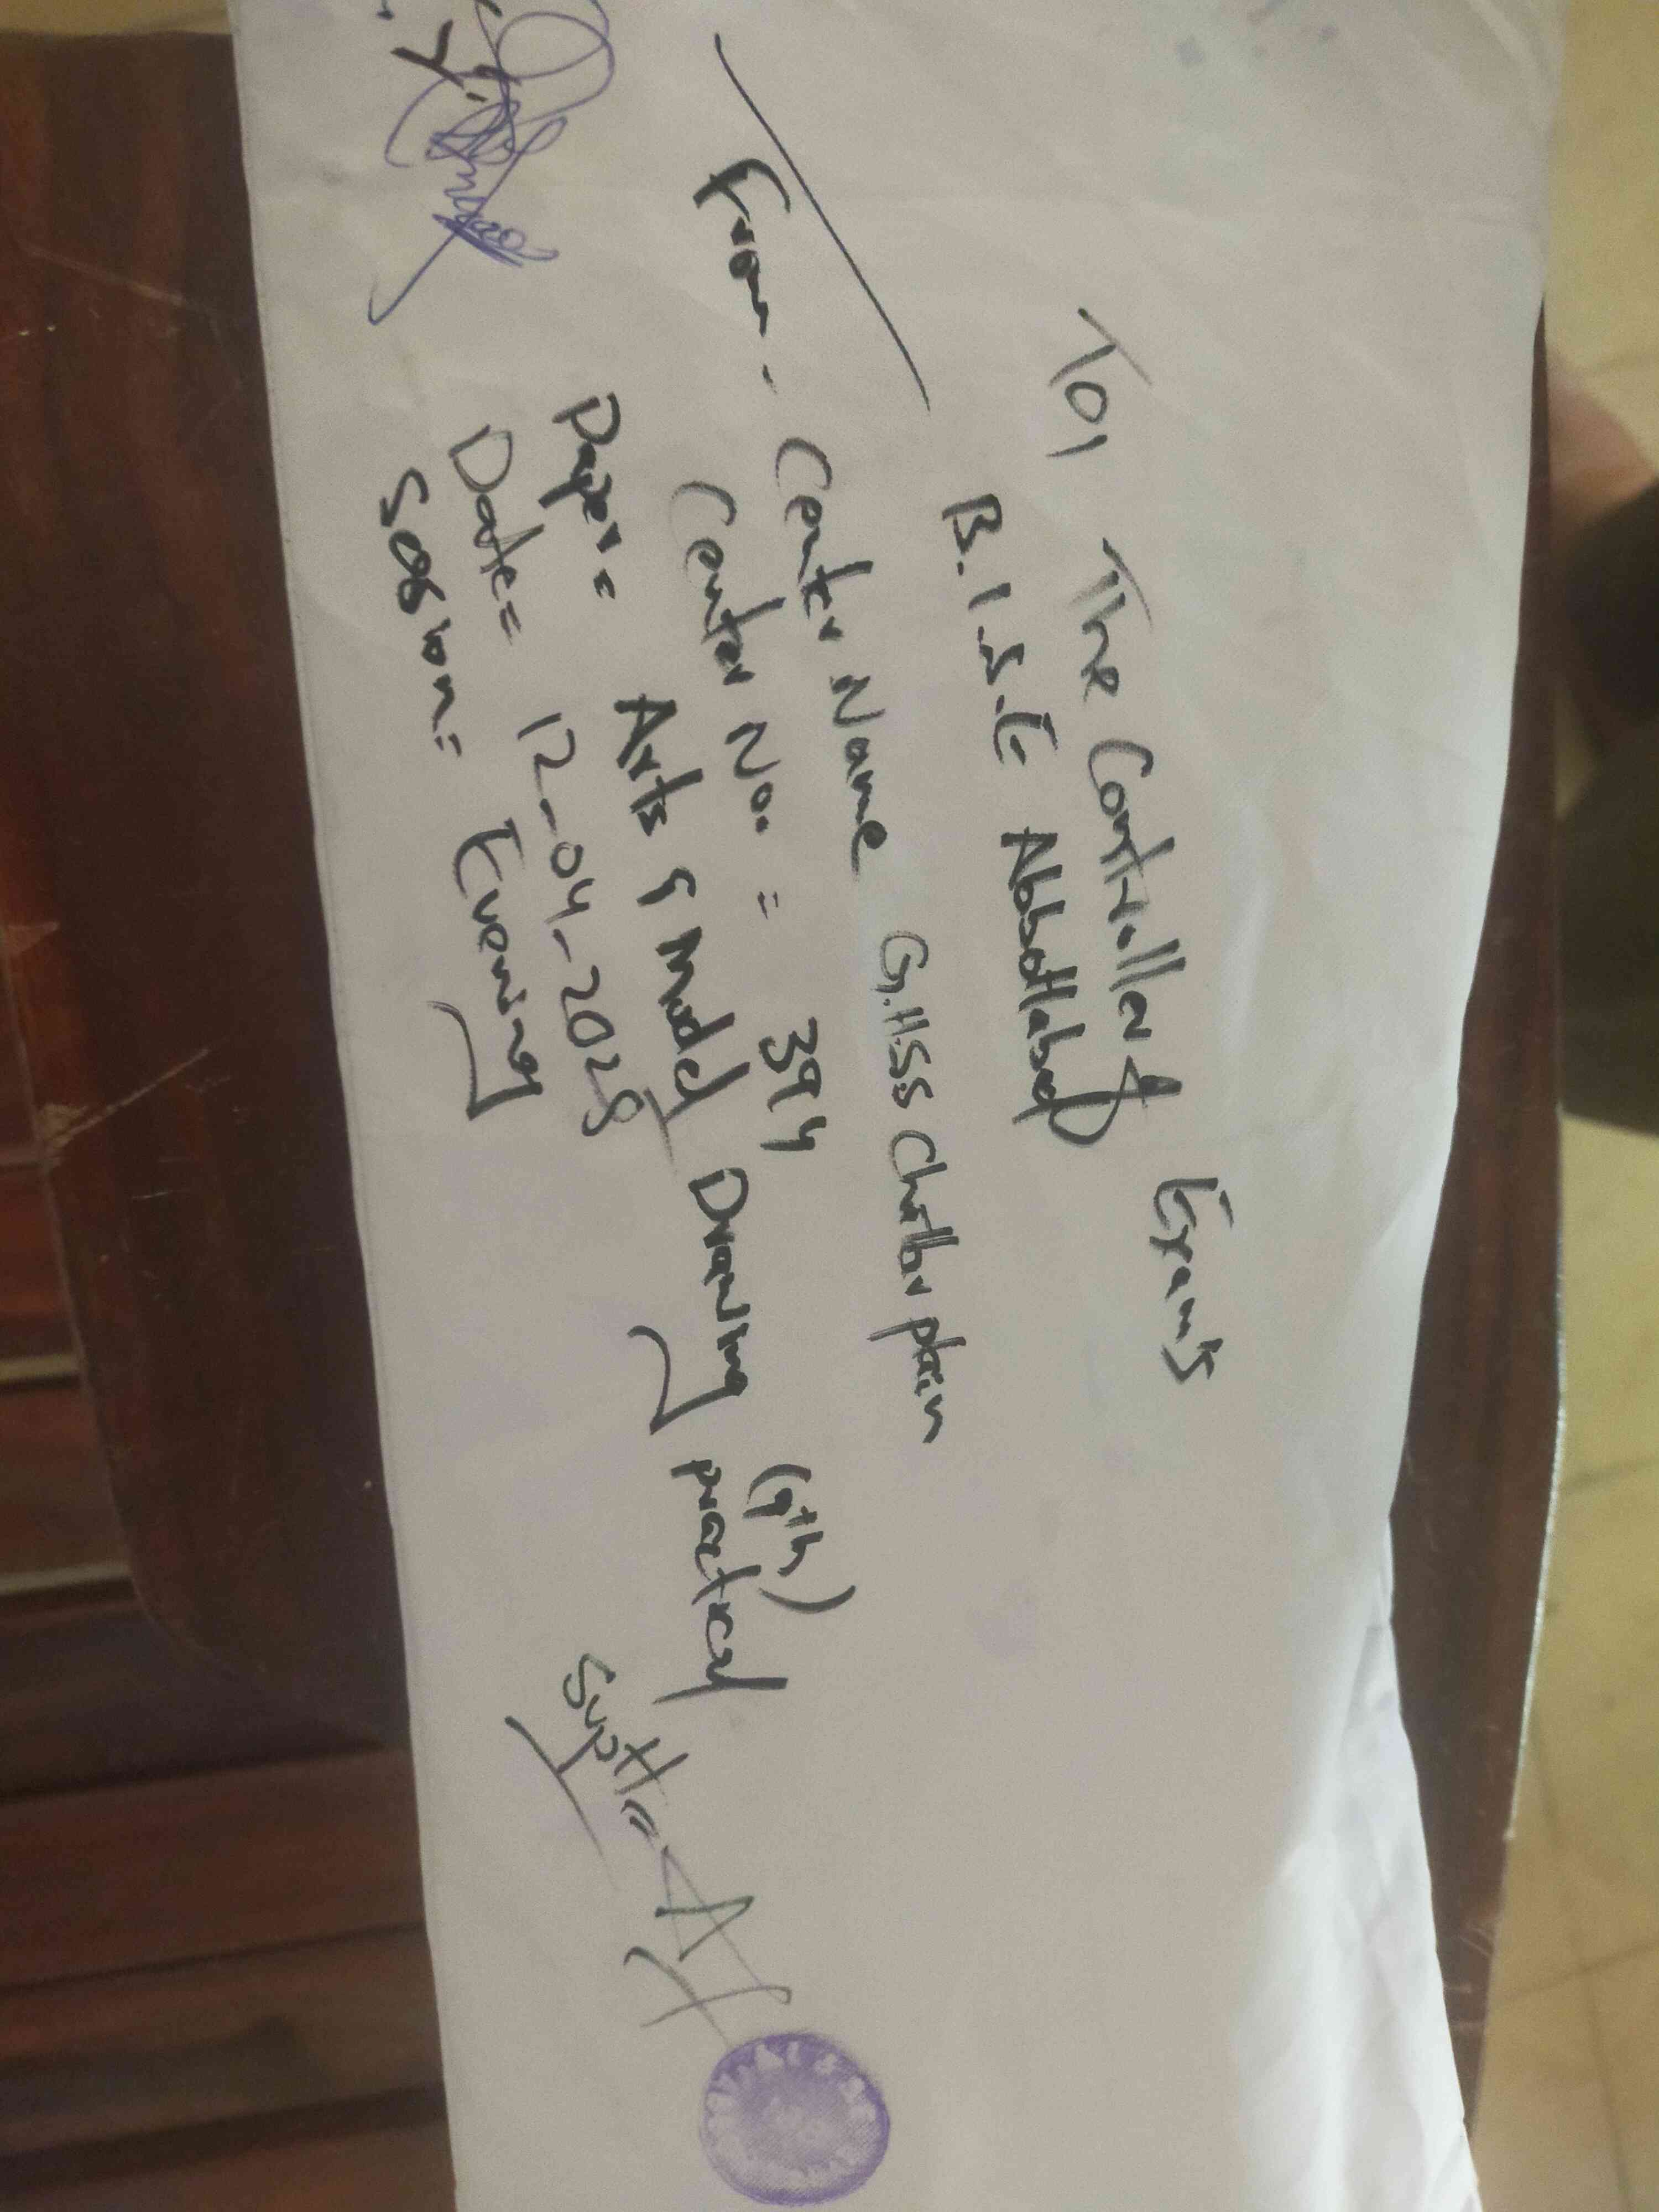 To, The Controller of Exam's
B.I.S.E Abbottabad
From - Center Name G.H.S.S Chattar plain
Center No. = 394
(9th)
Paper = Arts & Model Drawing practical
Date = 12-04-2028
Session = Evening
Suptt =